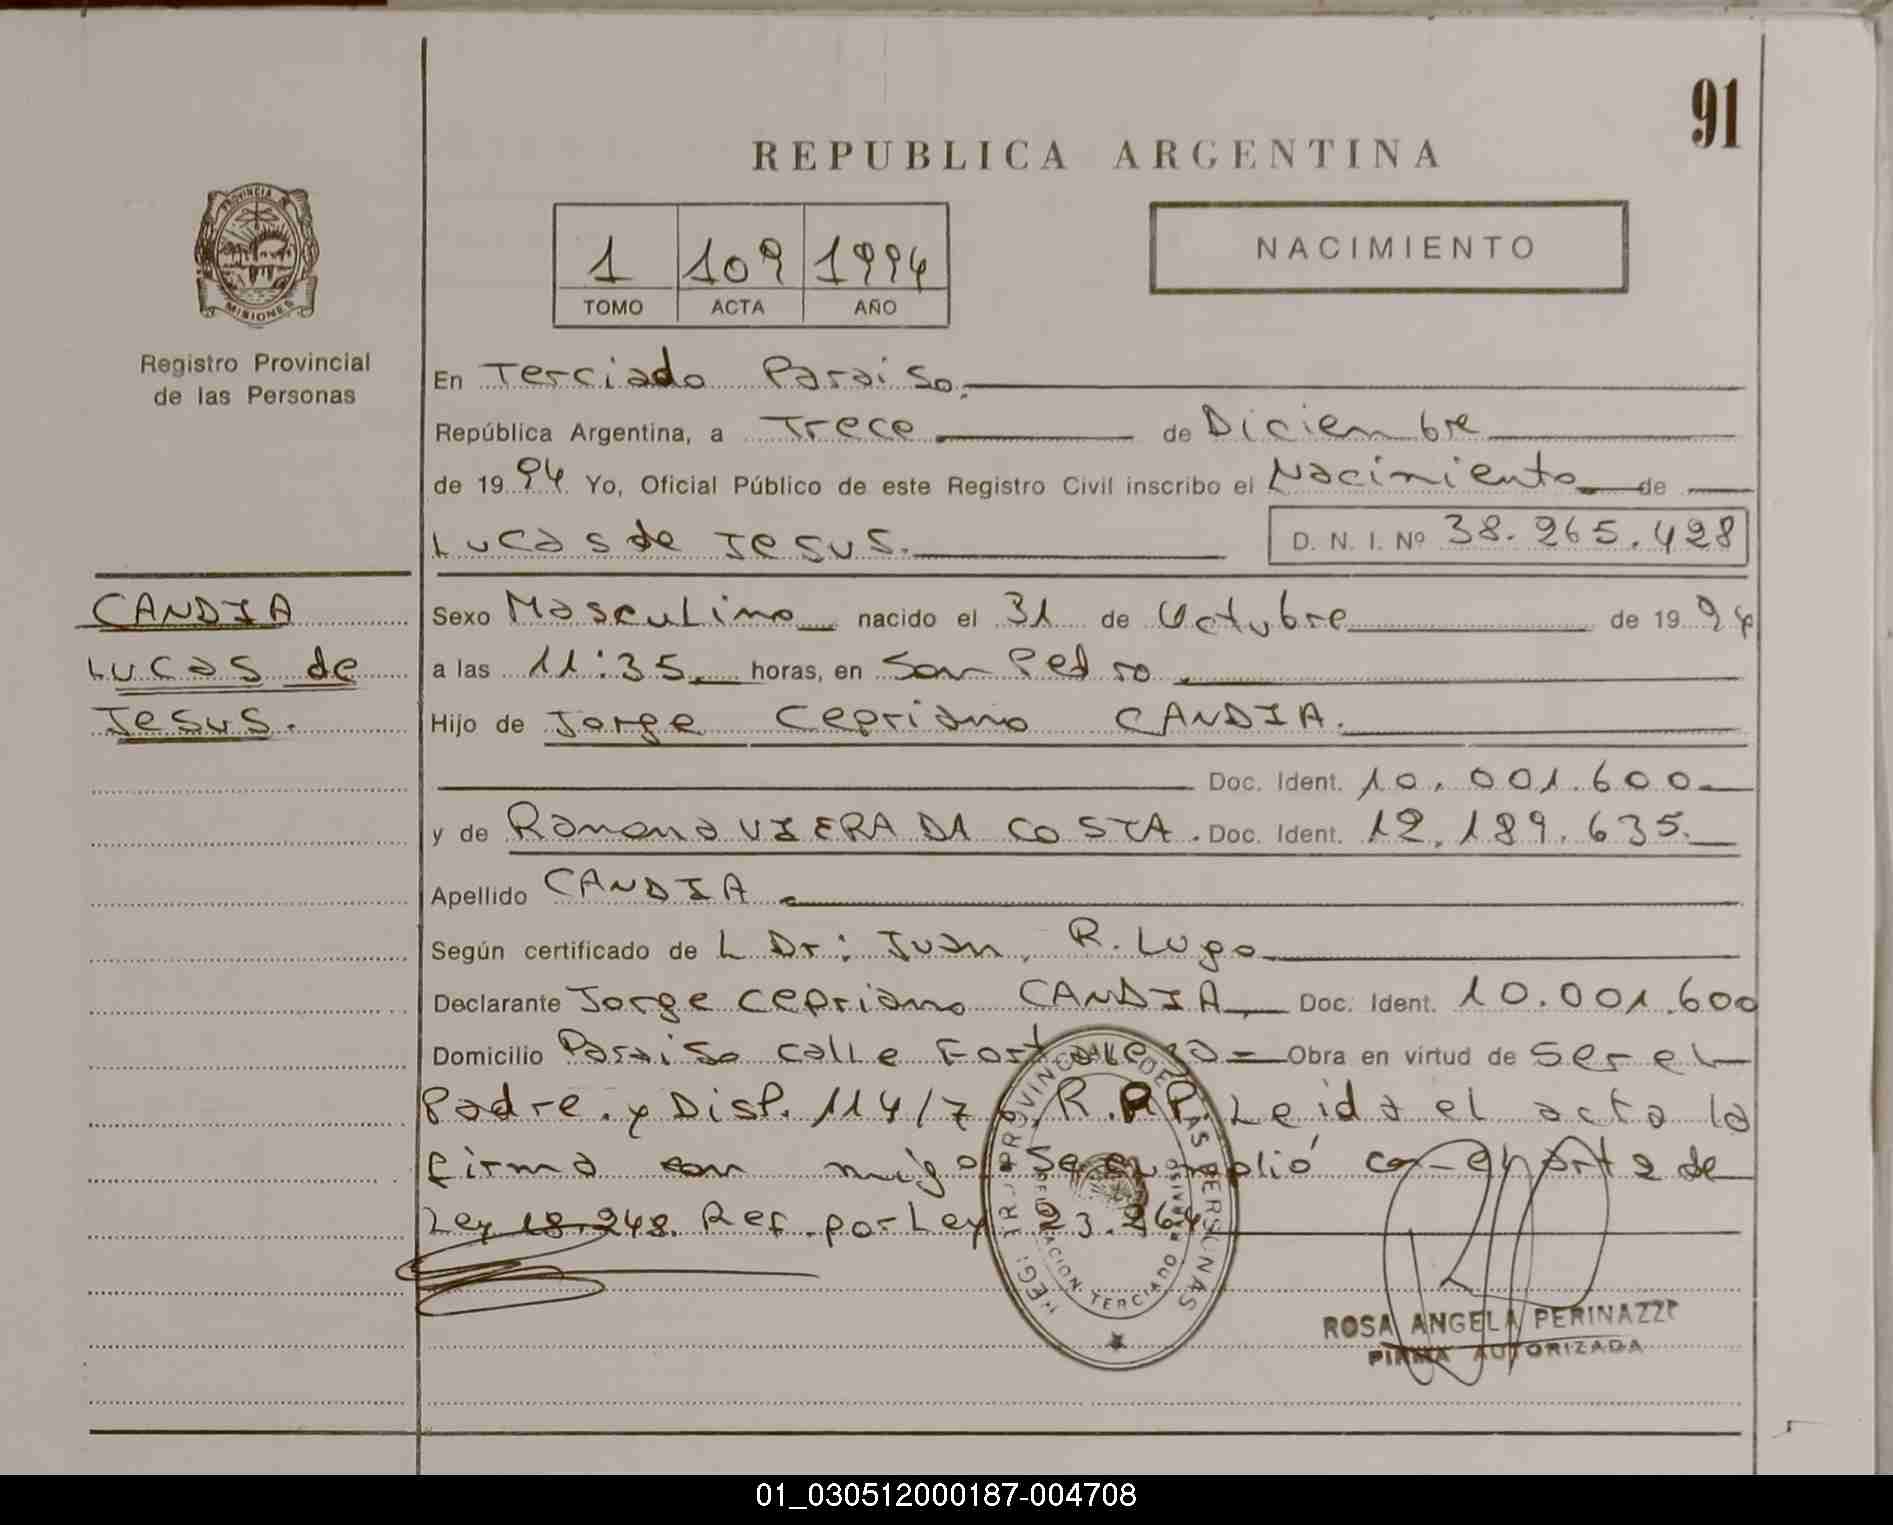 91
REPUBLICA ARGENTINA
PROVINCIA DE
MISIONES
Registro Provincial
de las Personas
1 109 1994
TOMO ACTA AÑO
NACIMIENTO
En Terciado Paraiso.
República Argentina, a Trece de Diciembre
de 1994 Yo, Oficial Público de este Registro Civil inscribo el Nacimiento de
Lucas de Jesus. D. N. I. Nº 38.265.428
CANDIA
Lucas de
Jesus.
Sexo Masculino nacido el 31 de Octubre de 1994
a las 11:35 horas, en San Pedro
Hijo de Jorge Cepriano CANDIA.
Doc. Ident. 10.001.600
y de Ramona VIERA DA COSTA. Doc. Ident. 12.189.635.
Apellido CANDIA
Según certificado de L Dr: Juan. R. Lugo
Declarante Jorge Cepriano CANDIA Doc. Ident. 10.001.600
Domicilio Paraiso calle Fortaleza = Obra en virtud de ser el
Padre. y Disp. 114/7 R.P.P. Leida el acta la
firma con migo. Se cumplió con aporte de
Ley 18.248. Ref. por Ley 23.264
REG. PROVINCIAL DE LAS PERSONAS
DELEGACION TERCIADO PARAISO
ROSA ANGELA PERINAZZI
FIRMA AUTORIZADA
01_030512000187-004708